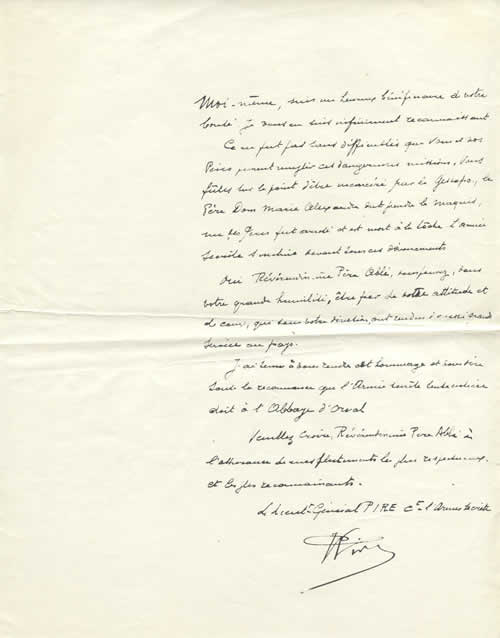 Moi-même, suis un heureux bénéficiaire de votre
bonté. Je vous en suis infiniment reconnaissant
Ce ne fut pas sans difficultés que vous et vos
Pères purent remplir ces dangereuses missions, vous
fûtes sur le point d'être incarcéré par la Gestapo, le
Père Dom Marie Alexandre dut prendre le maquis,
un des Pères fut arrêté et est mort à la tâche. L'armée
Secrète s'incline devant tous ces dévouements
Oui Révérendissime Père Abbé, vous pouvez, dans
votre grande humilité, être fier de votre attitude et
de ceux, qui sous votre direction, ont rendu si grand
service au pays.
J'ai tenu à vous rendre cet hommage et vous dire
toute la reconnaissance que l'Armée Secrète
doit à l'Abbaye d'Orval
Veuillez croire, Révérendissime Père Abbé à
l'assurance de mes sentiments les plus respectueux
et les plus reconnaissants.
Le Lieut-Général PIRE Ct l'Armée Secrète
Pire